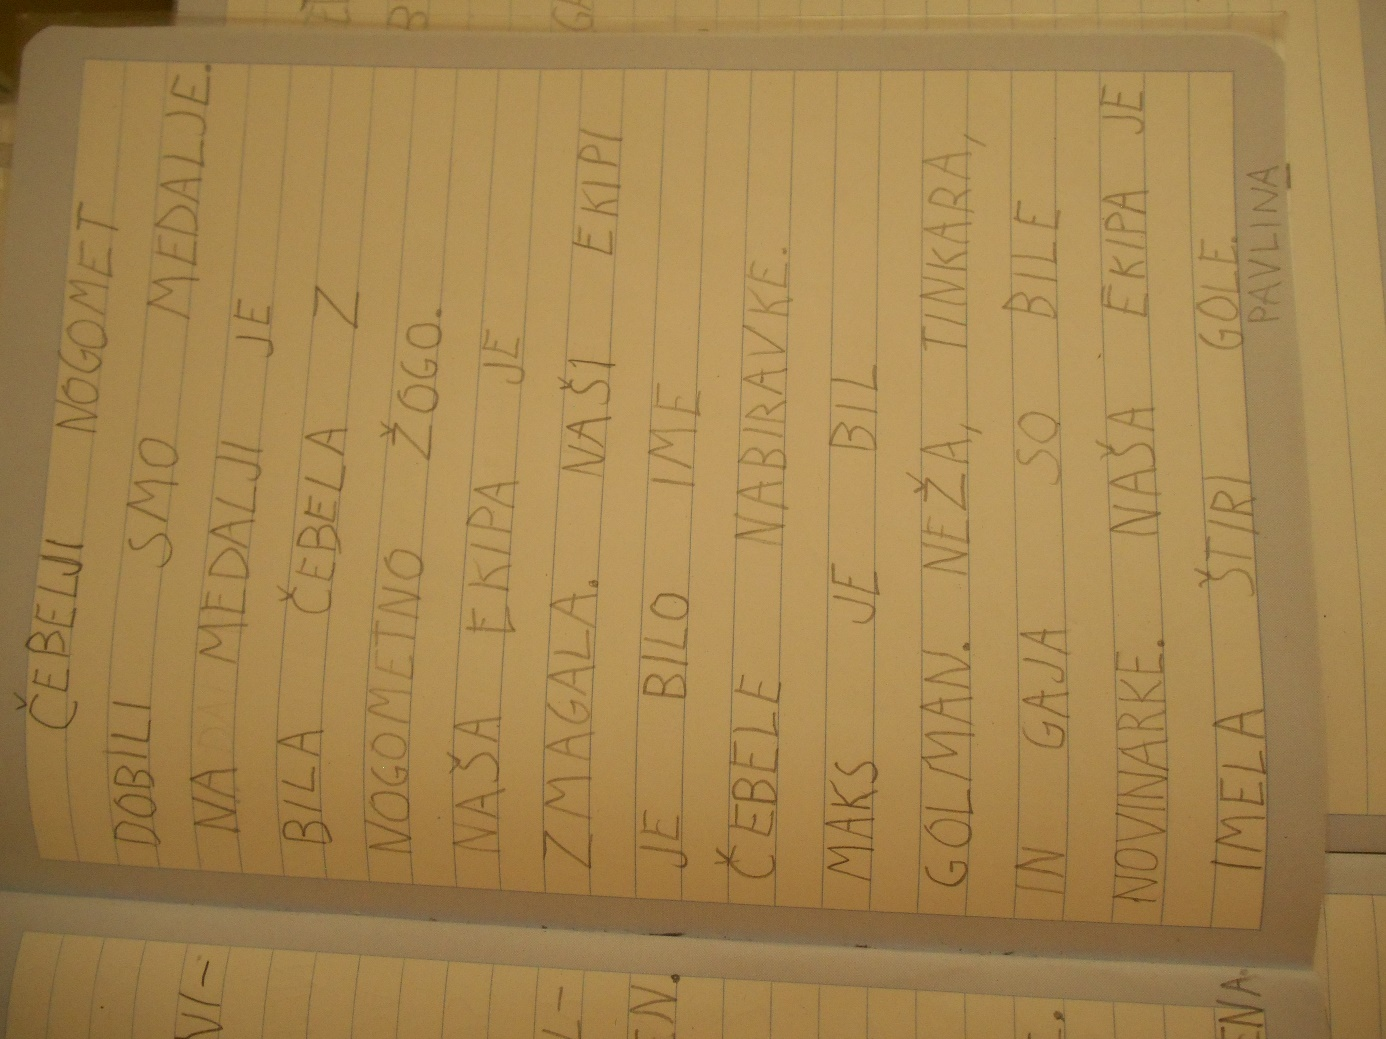 ČEBELJI NOGOMET
DOBILI SMO MEDALJE.
NA MEDALJI JE
BILA ČEBELA Z
NOGOMETNO ŽOGO.
NAŠA EKIPA JE
ZMAGALA. NAŠI EKIPI
JE BILO IME
ČEBELE NABIRAVKE.
MAKS JE BIL
GOLMAN. NEŽA, TINKARA,
IN GAJA SO BILE
NOVINARKE. NAŠA EKIPA JE
IMELA ŠTIRI GOLE.
PAVLINA